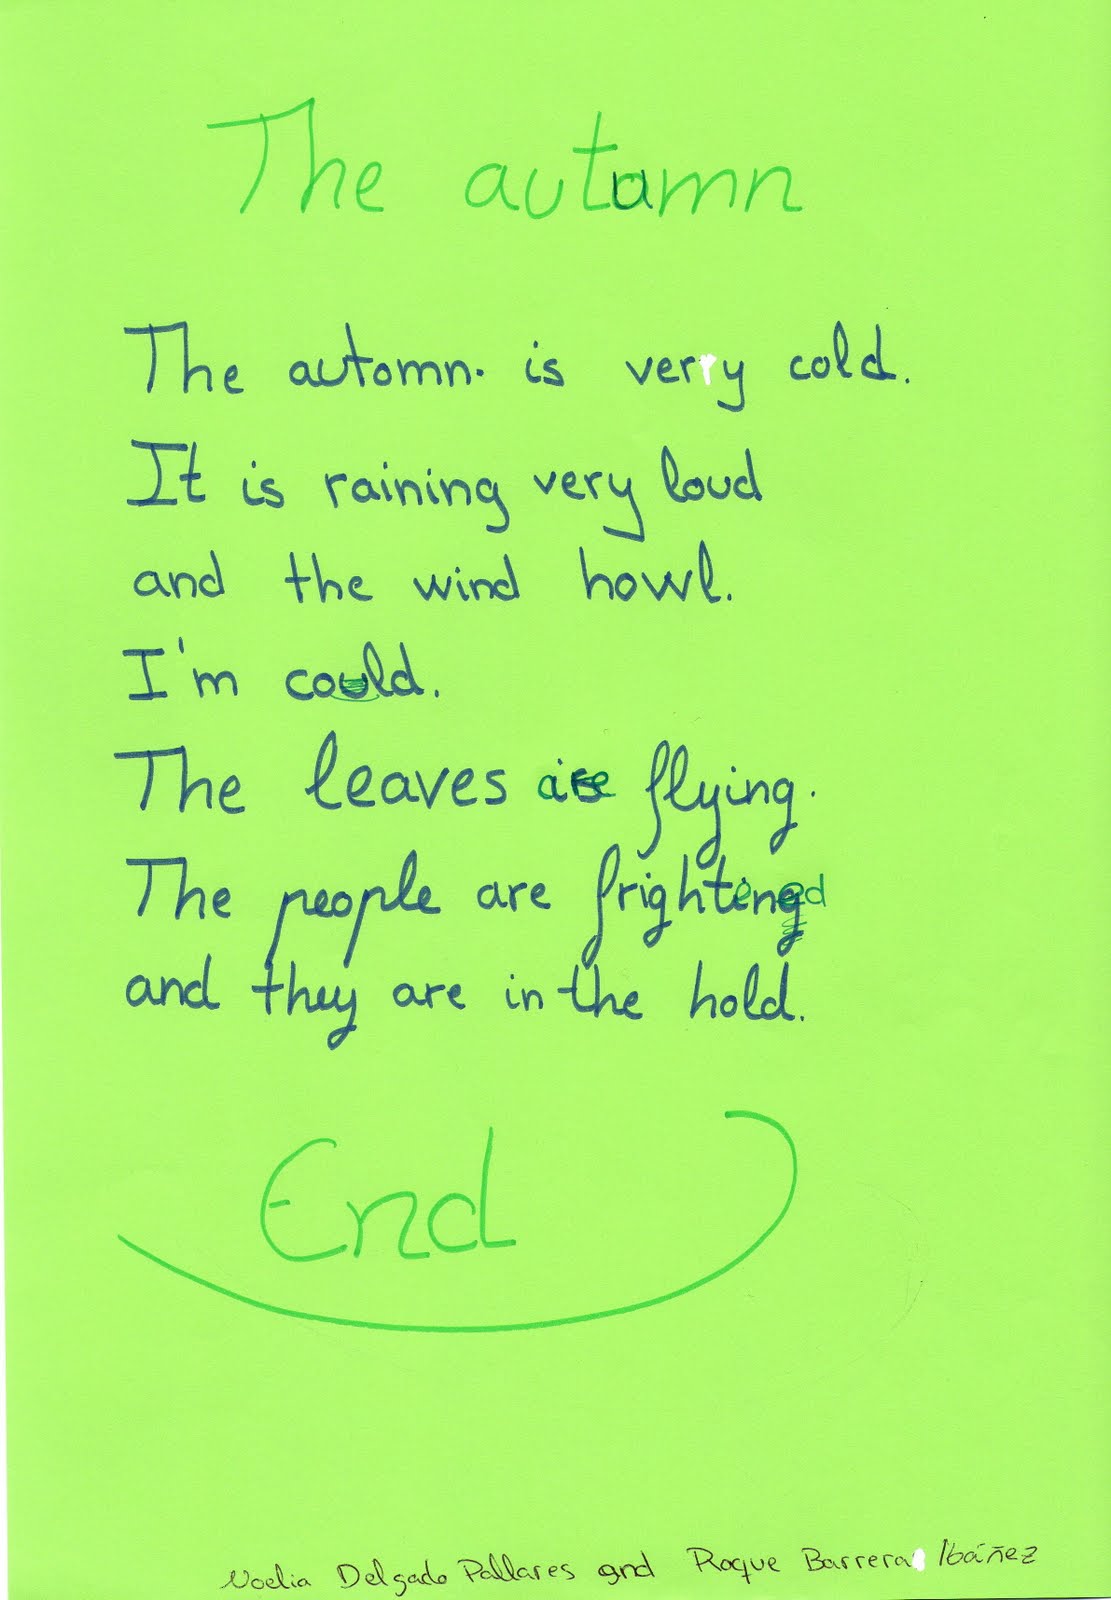 The autumn
The automn. is very cold.
It is raining very loud
and the wind howl.
I'm cold.
The leaves are flying.
The people are frightened
and they are in the hold.
End
Noelia Delgado Pallares and Roque Barrera Ibáñez